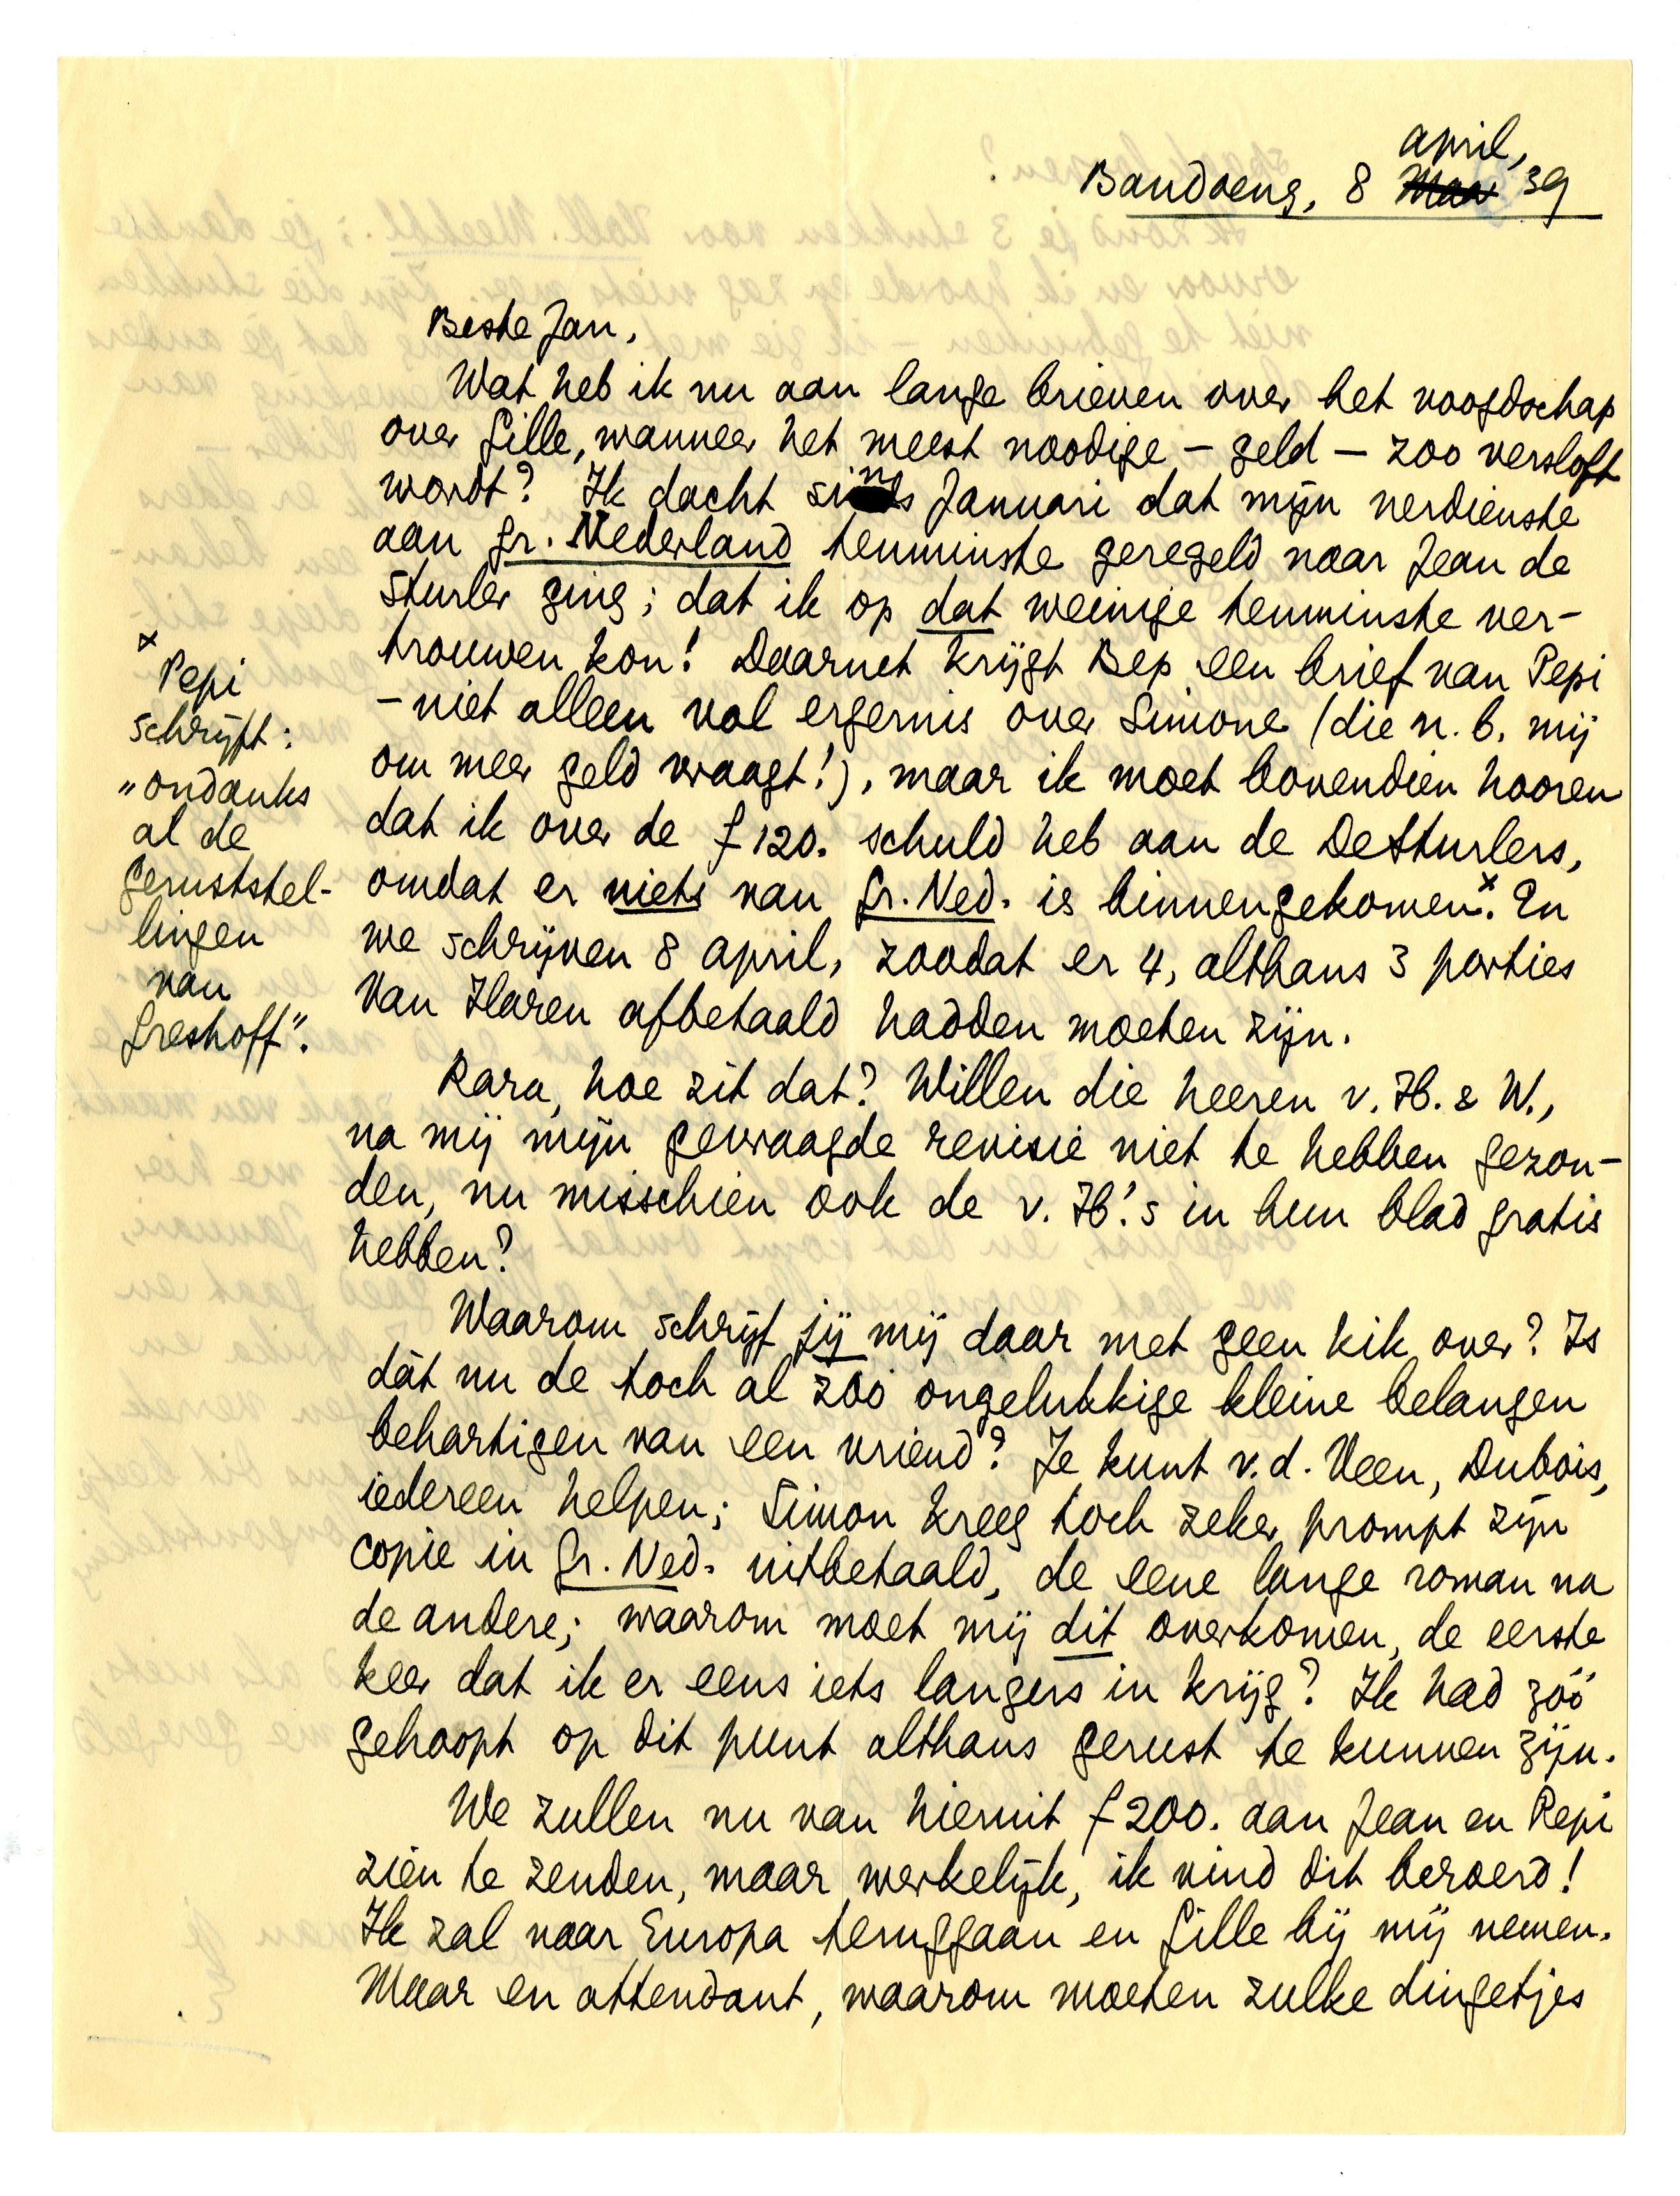 april,
Bandoeng, 8 Maa '39
Beste Jan,
Wat heb ik nu aan lange brieven over het voogdschap
over Gille, wanneer het meest noodige – geld – zoo versloft
wordt? Ik dacht sinds Januari dat mijn verdienste
aan Gr. Nederland tenminste geregeld naar Jean de
Sturler ging; dat ik op dat weinige tenminste ver-
trouwen kon! Daarnet krijgt Bep een brief van Pepi
– niet alleen vol ergernis over Simone (die n.b. mij
om meer geld vraagt!), maar ik moet bovendien hooren
dat ik over de f 120. schuld heb aan de DeSturlers,
omdat er niets van Gr. Ned. is binnengekomen.x En
we schrijven 8 april, zoodat er 4, althans 3 porties
Van Haren afbetaald hadden moeten zijn.
x
Pepi
schrijft:
"ondanks
al de
geruststel-
lingen
van
Greshoff".
Rara, hoe zit dat? Willen die heeren v. H. & W.,
na mij mijn gevraagde revisie niet te hebben gezon-
den, nu misschien ook de v. H.'s in hun blad gratis
hebben?
Waarom schrijf jij mij daar met geen kik over? Is
dàt nu de toch al zóó ongelukkige kleine belangen
behartigen van een vriend? Je kunt v.d. Veen, Dubois,
iedereen helpen; Simon kreeg toch zeker prompt zijn
copie in Gr. Ned. uitbetaald, de eene lange roman na
de andere; waarom moet mij dit overkomen, de eerste
keer dat ik er eens iets langers in krijg? Ik had zóó
gehoopt op dit punt althans gerust te kunnen zijn.
We zullen nu van hieruit f 200. aan Jean en Pepi
zien te zenden, maar werkelijk, ik vind dit beroerd!
Ik zal naar Europa teruggaan en Gille bij mij nemen.
Maar en attendant, waarom moeten zulke dingetjes